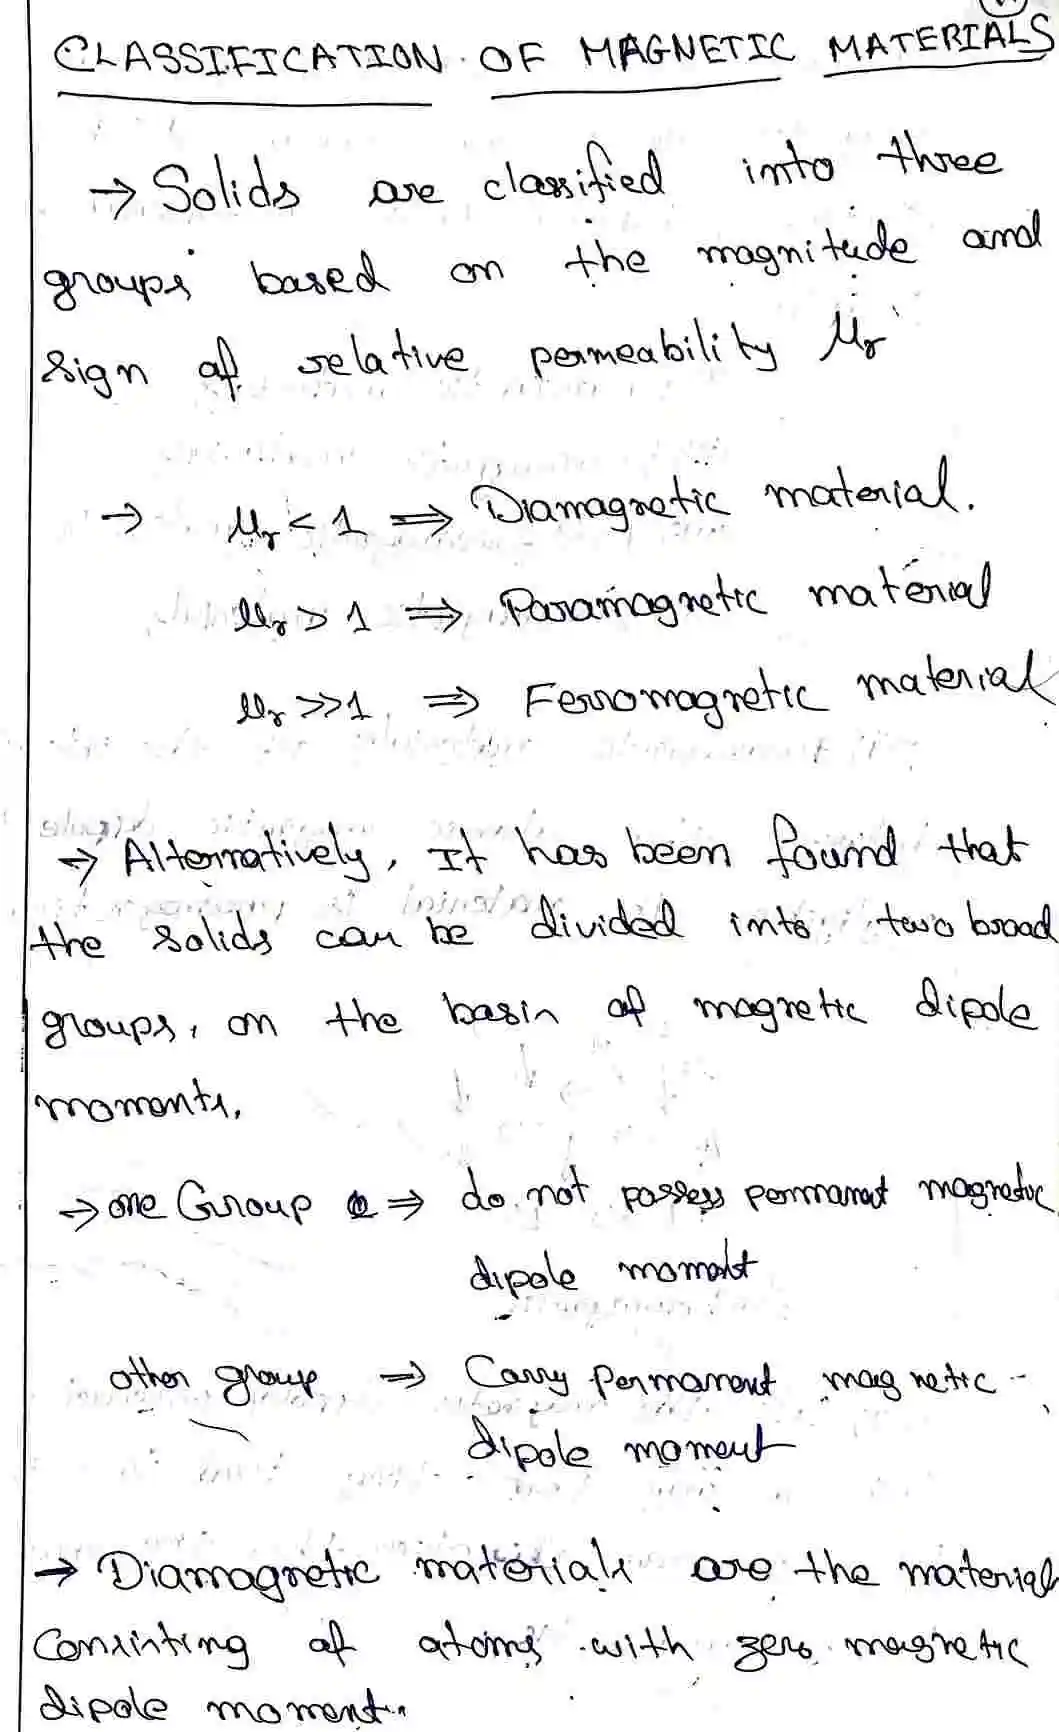 CLASSIFICATION OF MAGNETIC MATERIALS
→ Solids are classified into three
groups based on the magnitude and
sign of relative permeability μr
→ μr < 1 ⇒ Diamagnetic material.
μr > 1 ⇒ Paramagnetic material
μr >> 1 ⇒ Ferromagnetic material
→ Alternatively, It has been found that
the solids can be divided into two broad
groups, on the basis of magnetic dipole
moments.
→ one Group ⇒ do not possess permanent magnetic
dipole moment
other group ⇒ Carry permanent magnetic
dipole moment
→ Diamagnetic materials are the material
Consisting of atoms with zero magnetic
dipole moment.